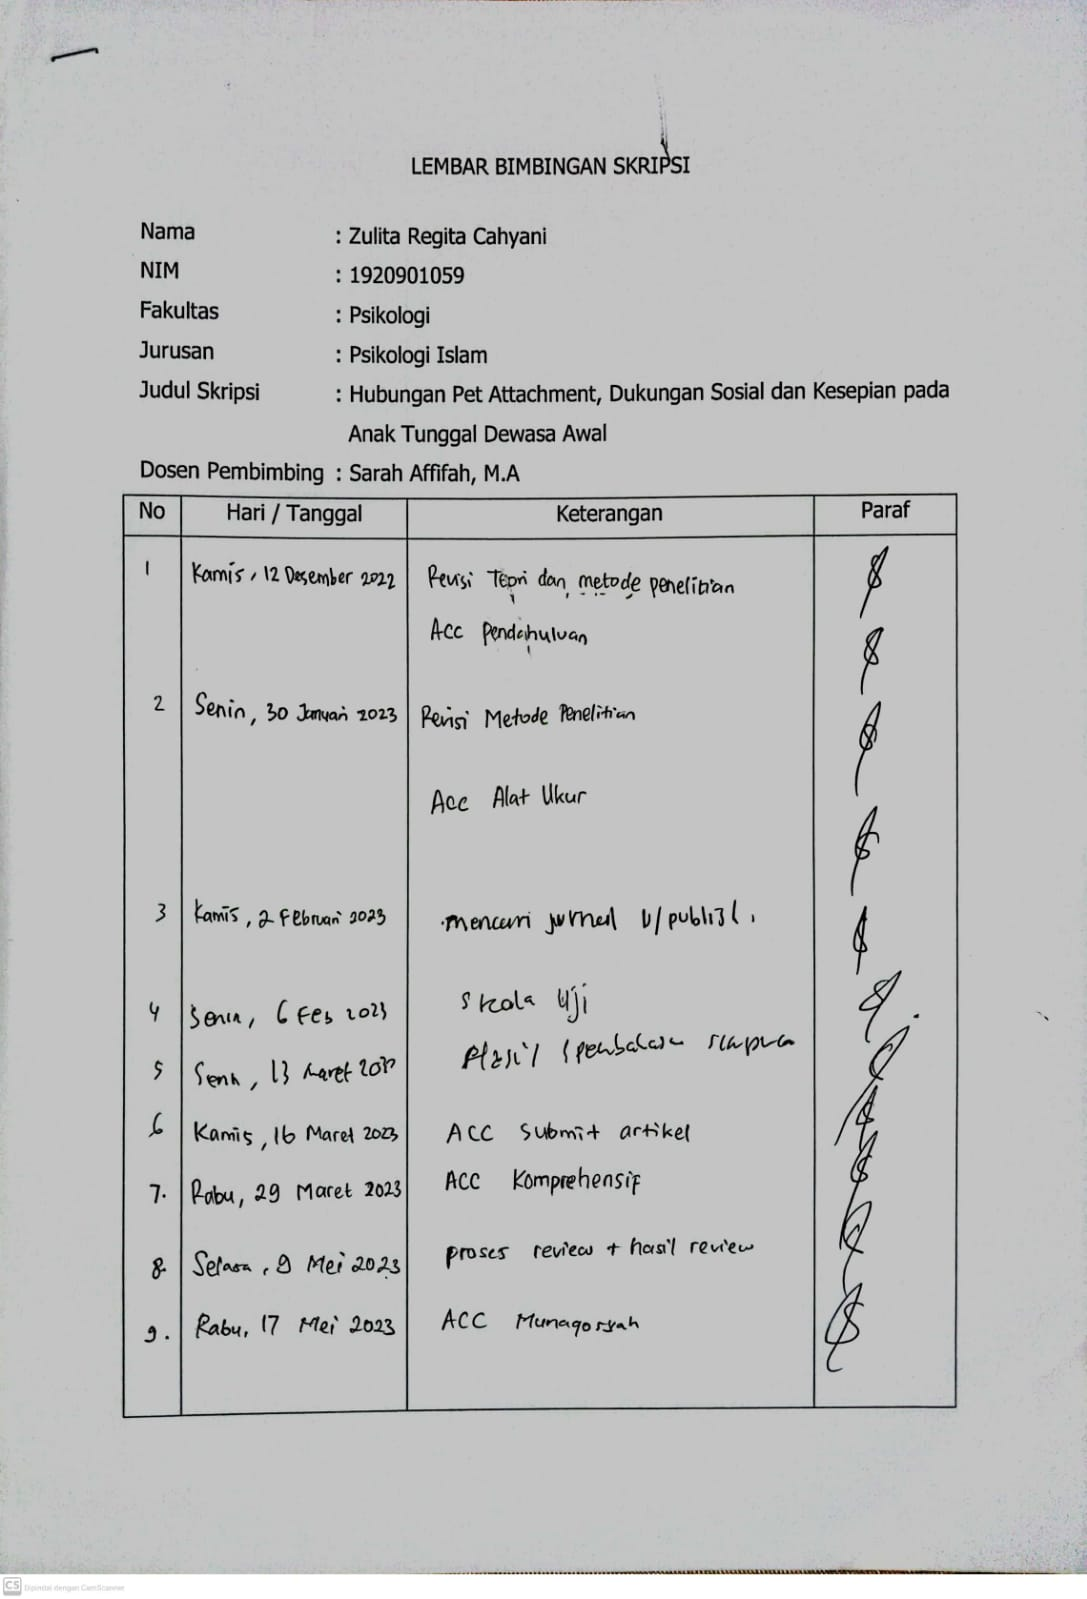 LEMBAR BIMBINGAN SKRIPSI
Nama : Zulita Regita Cahyani
NIM : 1920901059
Fakultas : Psikologi
Jurusan : Psikologi Islam
Judul Skripsi : Hubungan Pet Attachment, Dukungan Sosial dan Kesepian pada
Anak Tunggal Dewasa Awal
Dosen Pembimbing : Sarah Affifah, M.A
No Hari / Tanggal Keterangan Paraf
1 Kamis, 12 Desember 2022 Revisi Teori dan metode penelitian
Acc Pendahuluan
2 Senin, 30 Januari 2023 Revisi Metode Penelitian
Acc Alat Ukur
3 Kamis, 2 Februari 2023 mencari jurnal u/
4 Senin, 6 Feb 2023 Skala Uji
5 Senin, 13 Maret Hasil
6 Kamis, 16 Maret 2023 ACC submit artikel
7. Rabu, 29 Maret 2023 ACC Komprehensif
8. Selasa, 9 Mei 2023 proses review + hasil review
9. Rabu, 17 Mei 2023 ACC Munaqosyah
CS Dipindai dengan CamScanner